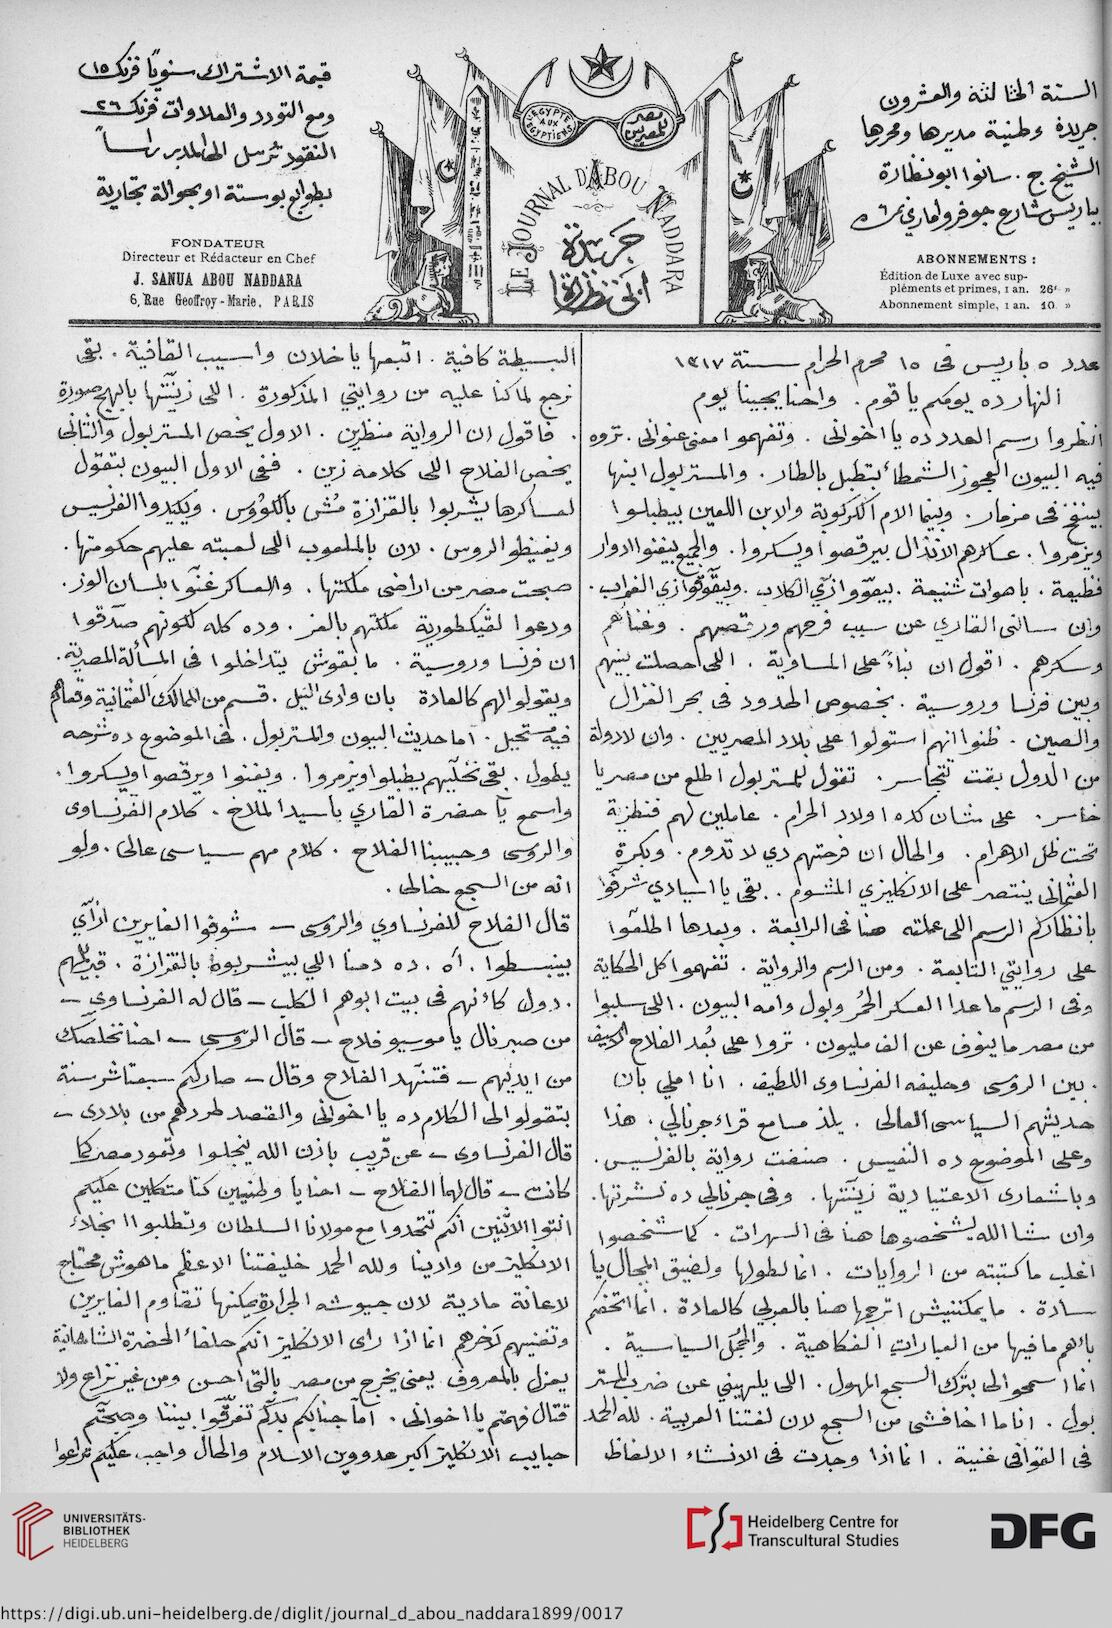 قيمة الاشتراك سنويًا فرنك ١٥
ومع التودد والعلاوات فرنك ٢٦
النقود ترسل الى المدير راسًا
بطوابع بوستة او بحوالة تجارية
FONDATEUR
Directeur et Rédacteur en Chef
J. SANUA ABOU NADDARA
6, Rue Geoffroy-Marie, PARIS
L'EGYPTE AUX EGYPTIENS
مصر للمصريين
LE JOURNAL D'ABOU NADDARA
جريدة
ابي نظارة
السنة الثالثة والعشرون
جريدة وطنية مديرها ومحررها
الشيخ ج. سانوا ابو نظارة
بباريس شارع جوفروا ماري نمرة ٦
ABONNEMENTS :
Édition de Luxe avec sup-
pléments et primes, 1 an. 26f »
Abonnement simple, 1 an. 10 »
عدد ٥ باريس فى ١٥ محرم الحرام سنة ١٣١٧
النهارده يومكم يا قوم. واحنا يجينا يوم
انظروا رسم العدد ده يا اخوانى. وتفهموا معنى عنوانى. تروه
فيه البيون العجوز الشمطاء بتطبل بالطار. والمستر بول ابنها
بينفخ فى مزمار. وبينما الام الكركوبة والابن اللعين بيطبلوا
ويزمروا. عساكرهم الانذال بيرقصوا ويسكروا. والجميع بيغنوا الادوار
فظيعة. باصوات شنيعة. بيعووا زي الكلاب. وبيقوقوا زي الغراب.
وان سالنى القاري عن سبب فرحهم ورقصهم. وغناهم
وسكرهم. اقول ان بناءً على المساوية. اللى احصلت بينهم
وبين فرنسا وروسية. بخصوص الحدود فى بحر الغزال
والصين. ظنوا انهم استولوا على بلاد المصريين. وان لا دولة
من الدول بقت تتجاسر. تقول للمستر بول اطلع من مصر يا
خاسر. على شان كده اولاد الحرام. عاملين لهم فنطزية
تحت ظل الاهرام. والحال ان فرحتهم دي لا تدوم. وبكرة
العثمانى ينتصر على الانكليزي المشوم. بقى يا اسيادي شرفوا
بانظاركم الرسم اللى عملته هنا فى الرابعة. وبعدها اطلعوا
على روايتي التابعة. ومن الرسم والرواية. تفهموا كل الحكاية
وفى الرسم ما عدا العسكر الحمر وبول وامه البيون. اللى سلبوا
من مصر ما ينوف عن الف مليون. تروا على بُعد الفلاح
. بين الروسى وحليفه الفرنساوى اللطيف. انا املي بان
حديثهم السياسى العالى. يلذ مسامع قراء جرنالي. هذا
وعلى الموضوع ده النفيس. صنفت رواية بالفرنسيس.
وباشعارى الاعتيادية زينتها. وفى جرنالي ده نشرتها.
وان شا الله يشخصوها هنا فى السهرات. كما شخصوا
اغلب ما كتبته من الروايات. انما لطولها ولضيق المجال يا
سادة. ما يمكننيش اترجمها هنا بالعربي كالعادة. انما اتحفكم
باهم ما فيها من العبارات الفكاهية. والجُمل السياسية.
انما اسمحوا لى بترك السجع المهول. اللى يلهيني عن ضرب المستر
بول. انا ما اخافشى من السجع لان لغتنا العربية. لله الحمد
فى القوافى غنية. انما اذا وجدت فى الانشاء الالفاظ
البسيطة كافية. اتبعها يا خلان واسيب القافية. بقى
نرجع لما كنا عليه من روايتي المذكورة. اللى زينّتها بابهج صورة
. فاقول ان الرواية منظرين. الاول يخص المستر بول والثانى
يخص الفلاح اللى كلامه زين. ففى الاول البيون بتقول
لعساكرها يشربوا بالقزازة مُش بالكؤوس. ويكيدوا الفرنسيس
ويغيظوا الروس. لان بالملعوب اللى لعبته عليهم حكومتها.
صبحت مصر من اراضى ملكتها. والعساكر غنّوا بلسان الوز.
ودعوا لفيكطورية ملكتهم بالعز. وده كله لكونهم صدّقوا
ان فرنسا وروسية. ما بقوش يتداخلوا فى المسألة المصرية.
ويقولوا لهم كالعادة بان وادى النيل. قسم من الممالك العثمانية وبقاكم
فيه مستحيل. اما حديث البيون والمستر بول. فى الموضوع ده شرحه
يطول. بقى نخلّيهم يطبلوا ويزمروا. ويغنوا ويرقصوا ويسكروا.
واسمع يا حضرة القاري يا سيد الملاح. كلام الفرنساوى
والروسى وحبيبنا الفلاح. كلام مهم سياسى عالى. ولو
انه من السجع خالى.
قال الفلاح للفرنساوي والروسى — شوفوا الغايرين ازآي
بينبسطوا. آه. ده دمنا اللي بيشربوه بالقزازة.
. دول كانهم فى بيت ابوهم الكلب — قال له الفرنساوي —
من صبر نال يا موسيو فلاح — قال الروسى — احنا نخلصك
من ايديهم — فتنهد الفلاح وقال — صار لكم سبعتاشر سنة
بتقولوا لى الكلام ده يا اخوانى والقصد طردهم من بلادى —
قال الفرنساوى — عن قريب باذن الله ينجلوا وتعود مصر كما
كانت — قال لهما الفلاح — احنا يا وطنيين كنا متكلين عليكم
انتوا الاثنين انكم تتحدوا مع مولانا السلطان وتطلبوا انجلاء
الانكليز من وادينا ولله الحمد خليفتنا الاعظم ما هوش محتاج
لاعانة مادية لان جيوشه الجرارة يمكنها تقاوم الغايرين
وتفنيهم لآخرهم انما اذا راى الانكليز انكم حلفاء الحضرة الشاهانية
يعزل بالمعروف يعنى يخرج من مصر بالتى احسن ومن غير نزاع ولا
قتال فهمتم يا اخوانى. اما جنابكم بدكم تفرقوا بيننا وصبحتم
حبايب الانكليز اكبر عدووين الاسلام والحال واجب عليكم تراعوا
UNIVERSITÄTS-
BIBLIOTHEK
HEIDELBERG
Heidelberg Centre for
Transcultural Studies
DFG
https://digi.ub.uni-heidelberg.de/diglit/journal_d_abou_naddara1899/0017